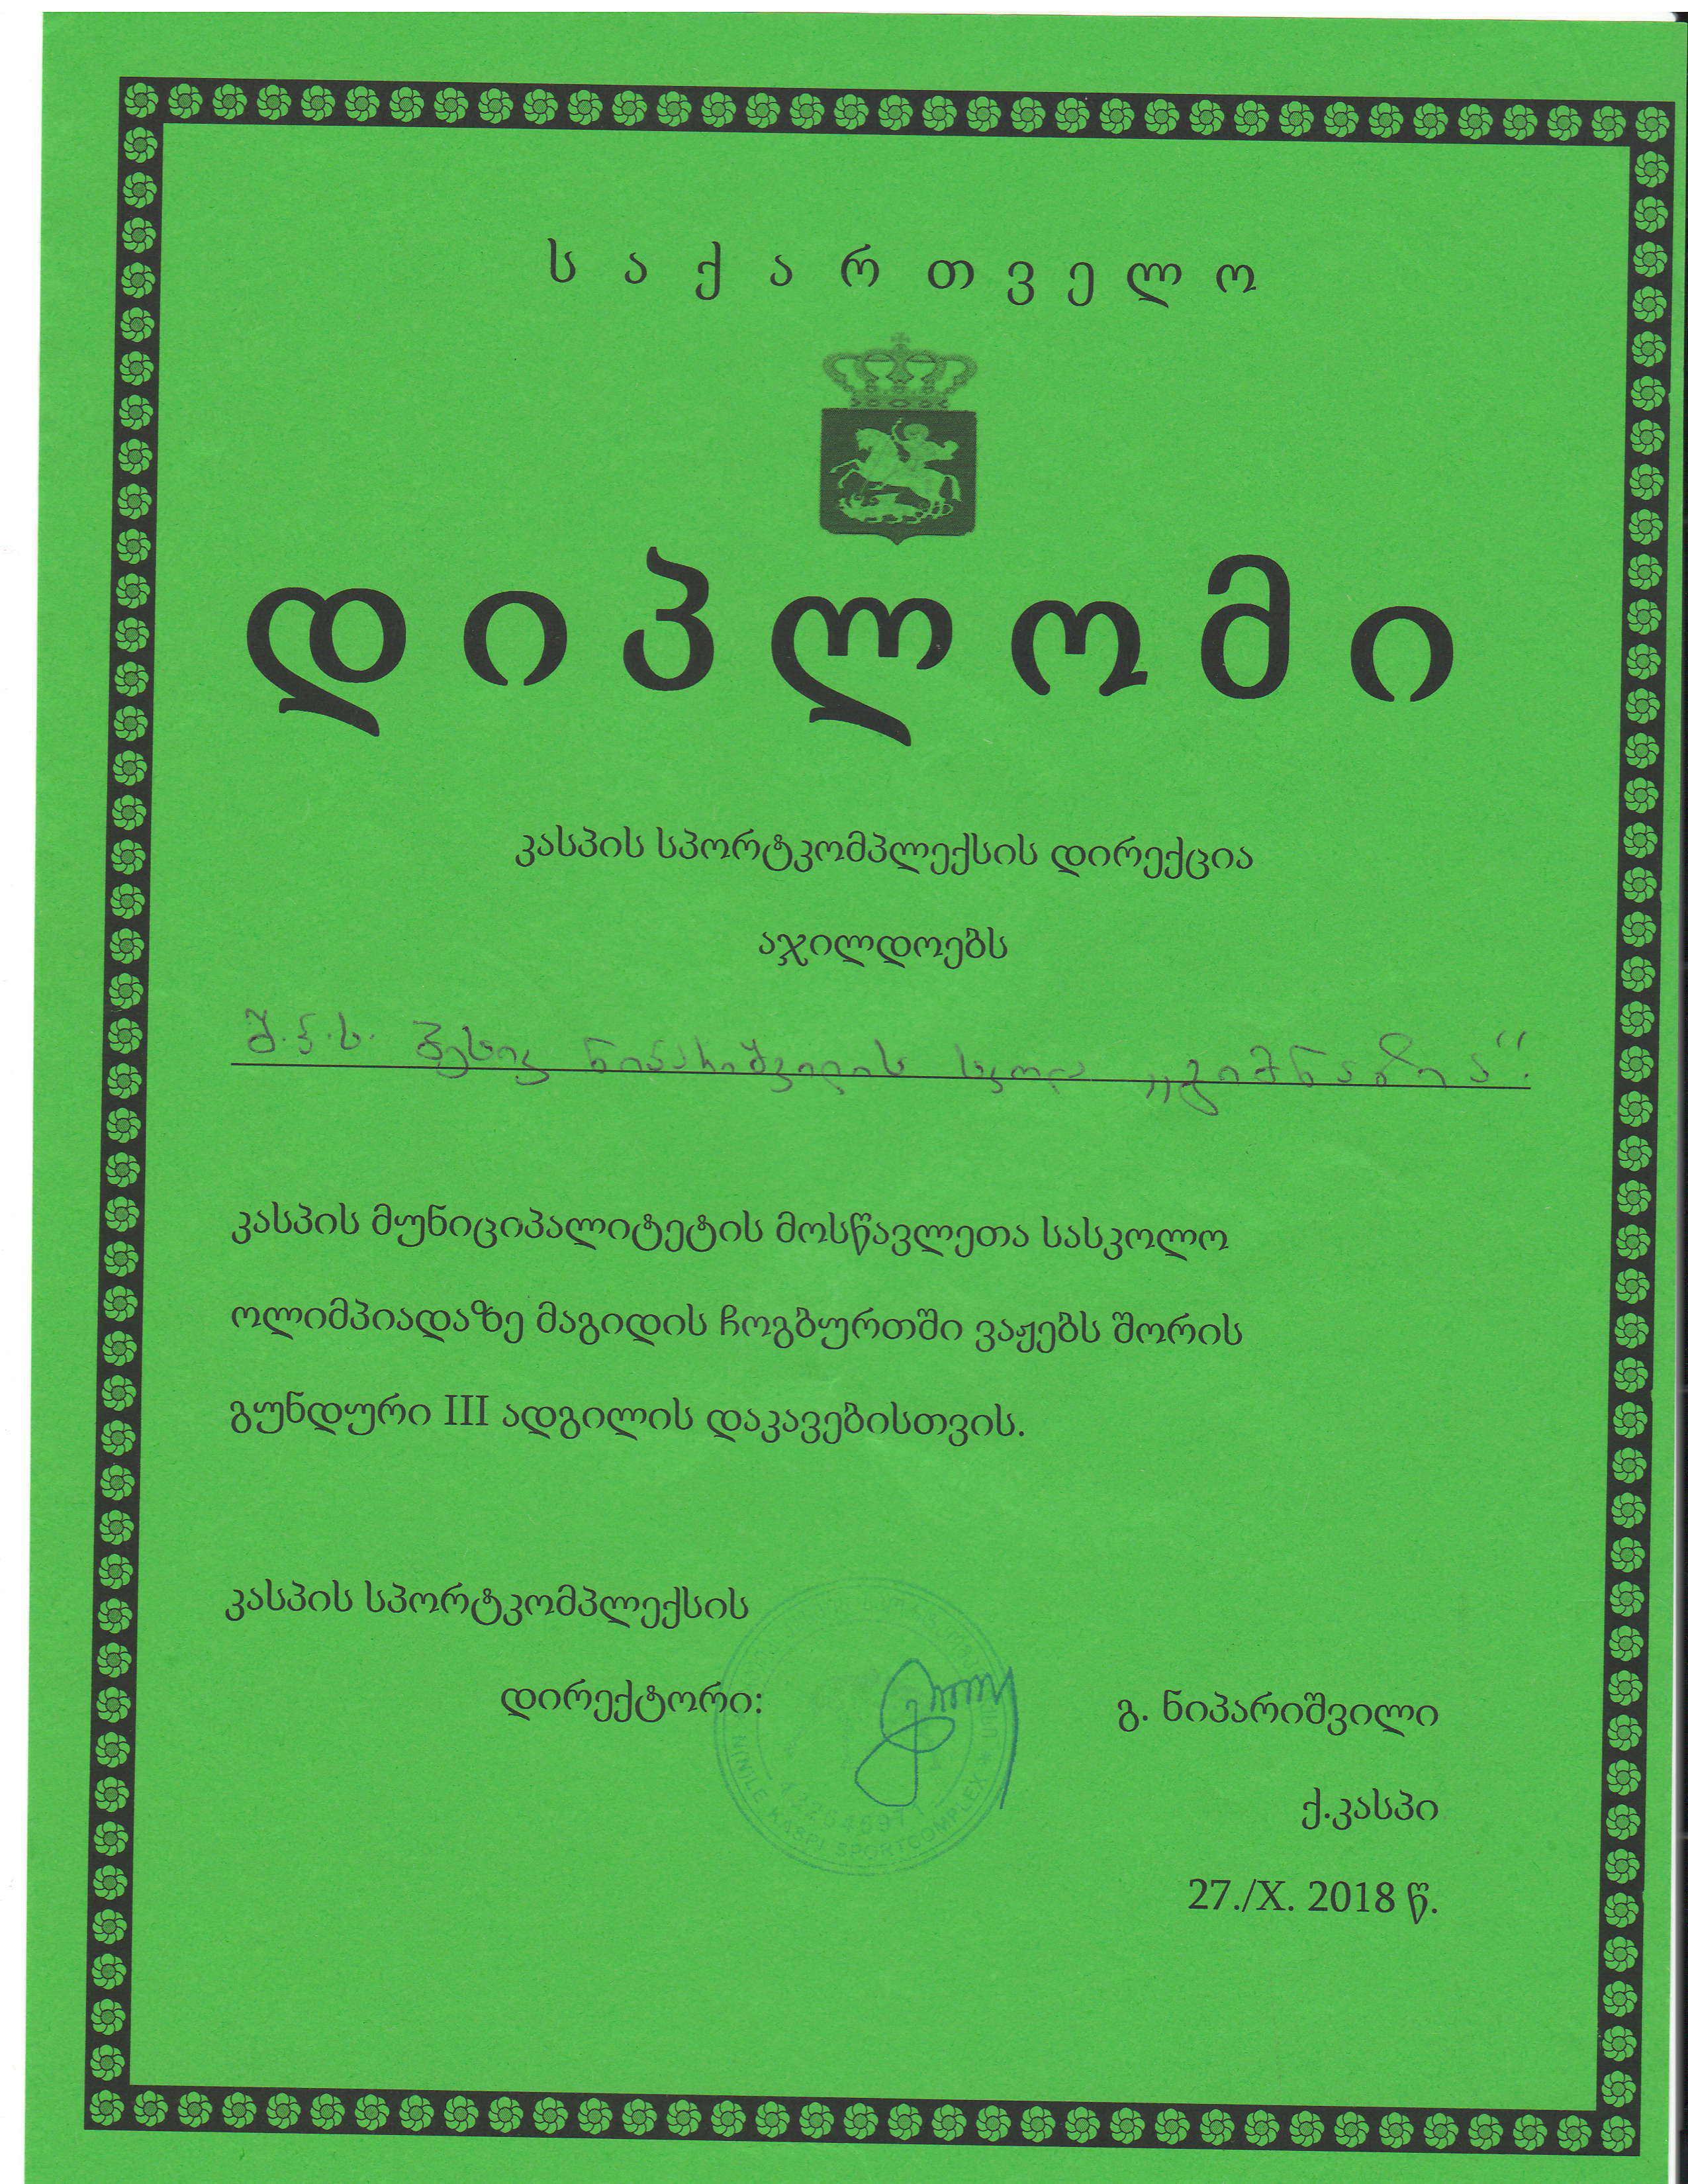 საქართველო
დიპლომი
კასპის სპორტკომპლექსის დირექცია
აჯილდოებს
შ.პ.ს. ბესიკ ნიპარიშვილის სკოლა „გიმნაზია“.
კასპის მუნიციპალიტეტის მოსწავლეთა სასკოლო
ოლიმპიადაზე მაგიდის ჩოგბურთში ვაჟებს შორის
გუნდური III ადგილის დაკავებისთვის.
კასპის სპორტკომპლექსის
დირექტორი:
გ. ნიპარიშვილი
KASPI SPORTCOMPLEX
ქ.კასპი
27./X. 2018 წ.